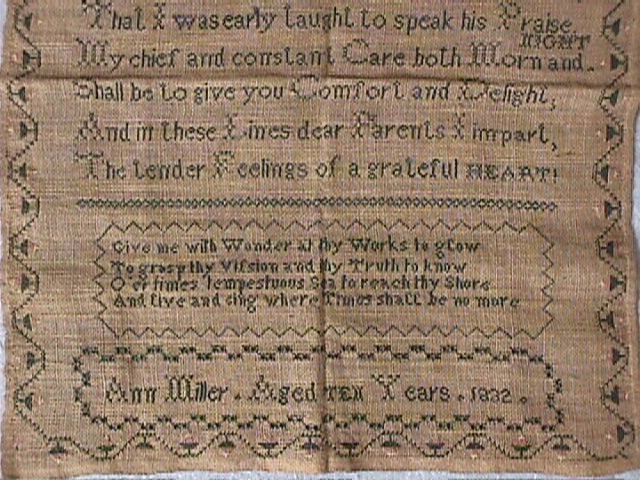 That I was early taught to speak his Praise
My chief and constant Care both Morn and NIGHT
Shall be to give you Comfort and Delight,
And in these Lines dear Parents I impart,
The tender Feelings of a grateful HEART!
Give me with Wonder at thy Works to glow
To grasp thy Vifsion and thy Truth to know
O er times Tempestuous Sea to reach thy Shore
And live and sing where Times shall be no more
Ann Miller . Aged TEN Years . 1832 .